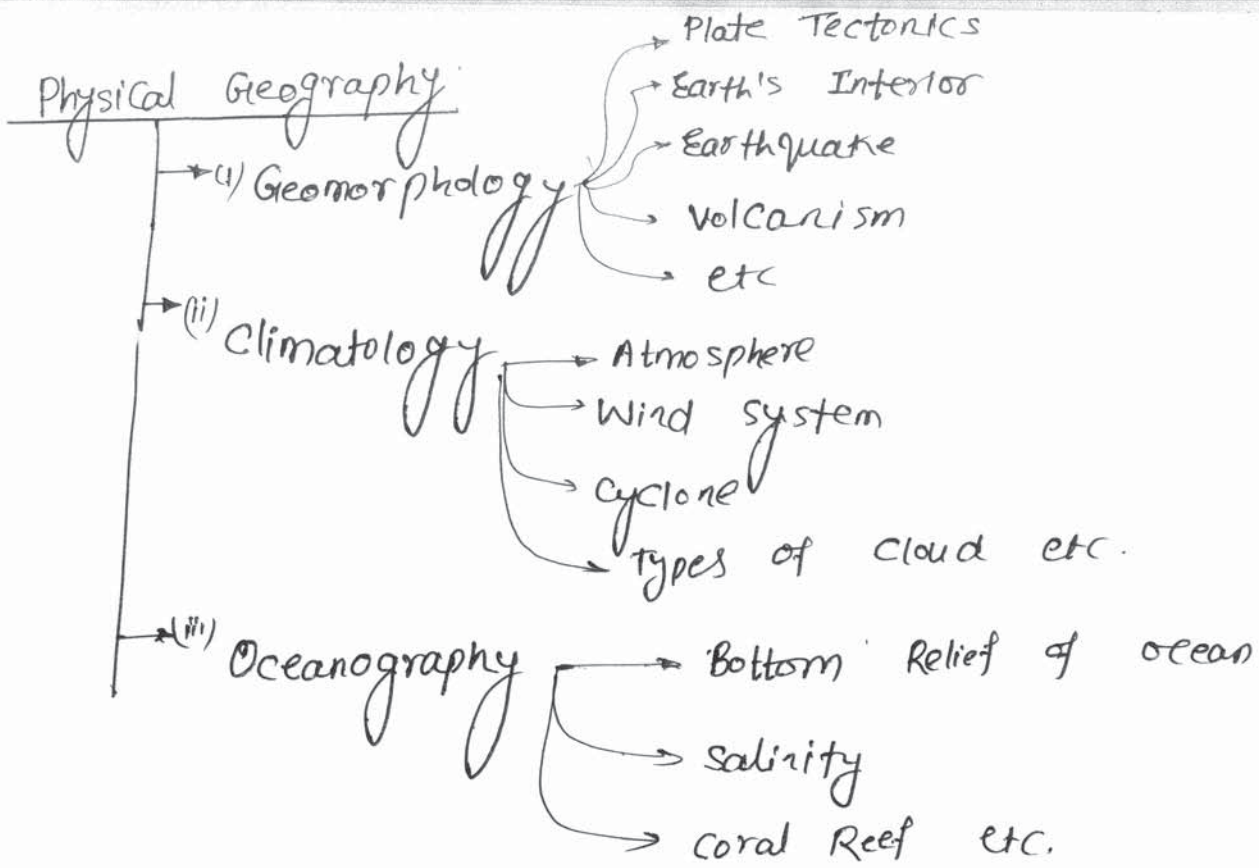 Physical Geography
(i) Geomorphology
Plate Tectonics
Earth's Interior
Earthquake
Volcanism
etc
(ii) Climatology
Atmosphere
Wind system
Cyclone
Types of Cloud etc.
(iii) Oceanography
Bottom Relief of ocean
Salinity
Coral Reef etc.